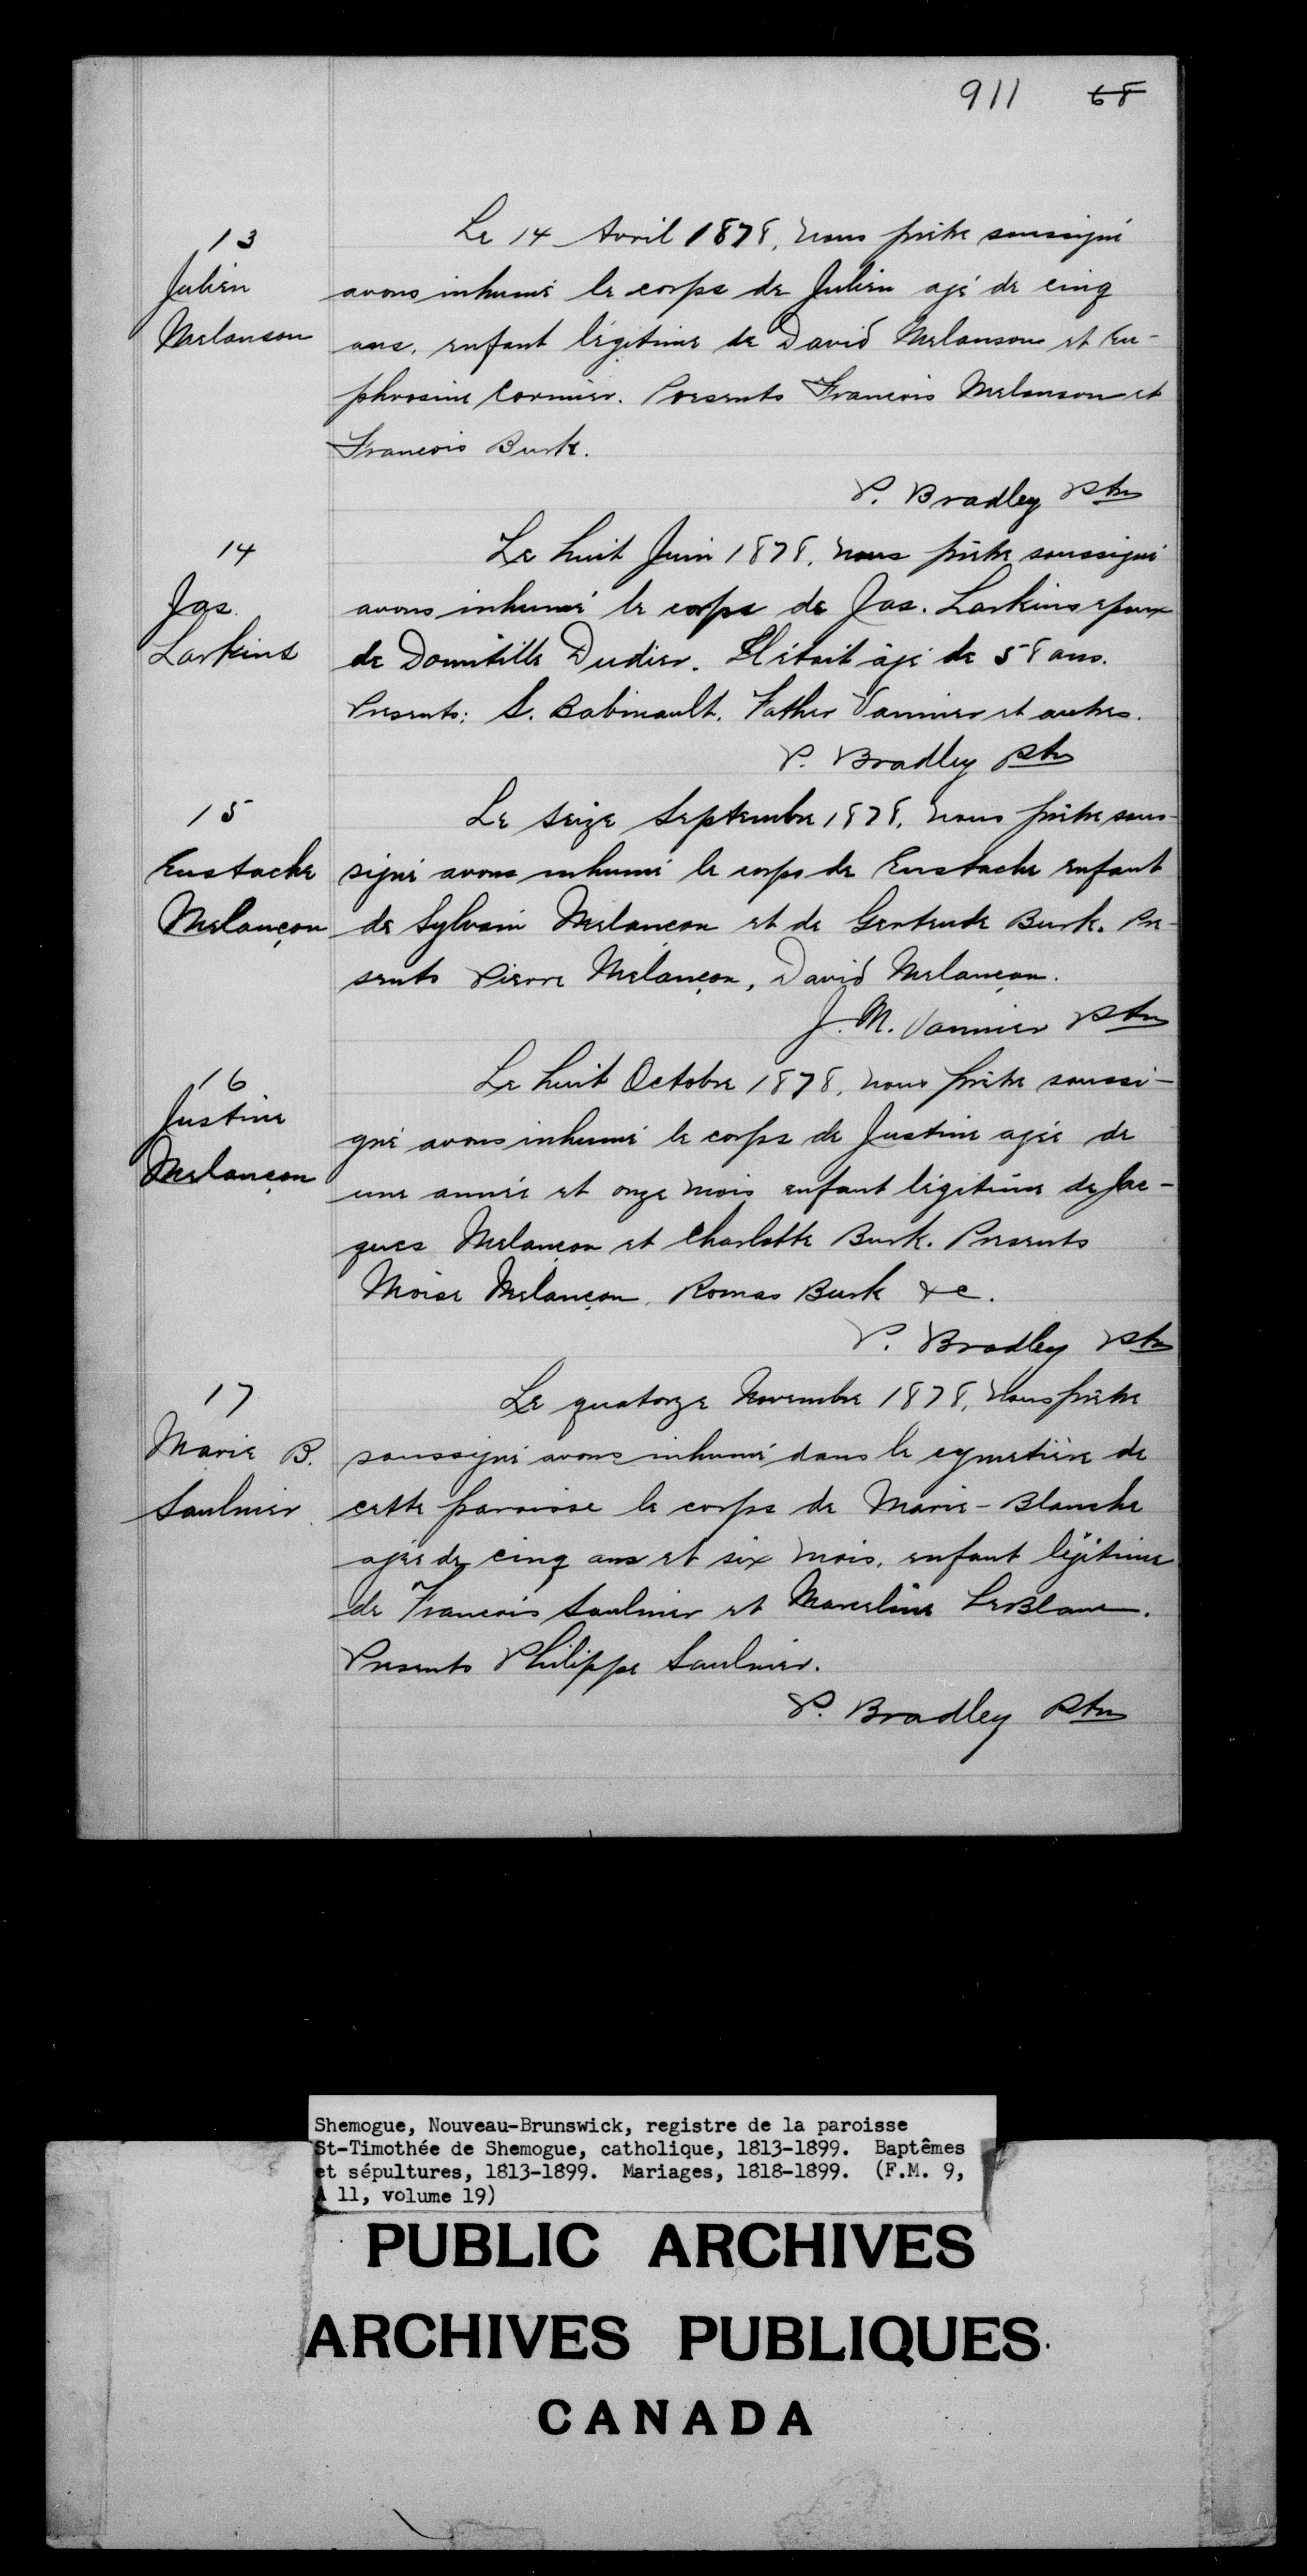 911 68
13
Julien
Melanson
Le 14 Avril 1878, nous prêtre soussigné
avons inhumé le corps de Julien agé de cinq
ans, enfant légitime de David Melanson et Eu-
phrosine Cormier. Presents Francois Melanson et
Francois Burk.
P. Bradley Ptre
14
Jas.
Larkins
Le huit Juin 1878, nous prêtre soussigné
avons inhumé le corps de Jas. Larkins epoux
de Domitille Dudier. Il était âgé de 58 ans.
Presents: S. Babinault, Father Vannier et autres.
P. Bradley Ptre
15
Eustache
Melançon
Le seize Septembre 1878, nous prêtre sous-
signé avons inhumé le corps de Eustache enfant
de Sylvain Melançon et de Gertrude Burk. Pre-
sents Pierre Melançon, David Melançon.
J. M. Vannier Ptre
16
Justine
Melançon
Le huit Octobre 1878, nous prêtre soussi-
gné avons inhumé le corps de Justine agée de
une année et onze mois enfant légitime de Jac-
ques Melançon et Charlotte Burk. Presents
Moise Melançon, Romas Burk &c.
P. Bradley Ptre
17
Marie B.
Saulnier
Le quatorze Novembre 1878, nous prêtre
soussigné avons inhumé dans le cymetière de
cette paroisse le corps de Marie-Blanche
agée de cinq ans et six mois, enfant légitime
de Francois Saulnier et Marceline LeBlanc.
Presents Philippe Saulnier.
P. Bradley Ptre
Shemogue, Nouveau-Brunswick, registre de la paroisse
St-Timothée de Shemogue, catholique, 1813-1899. Baptêmes
et sépultures, 1813-1899. Mariages, 1818-1899. (F.M. 9,
A 11, volume 19)
PUBLIC ARCHIVES
ARCHIVES PUBLIQUES
CANADA